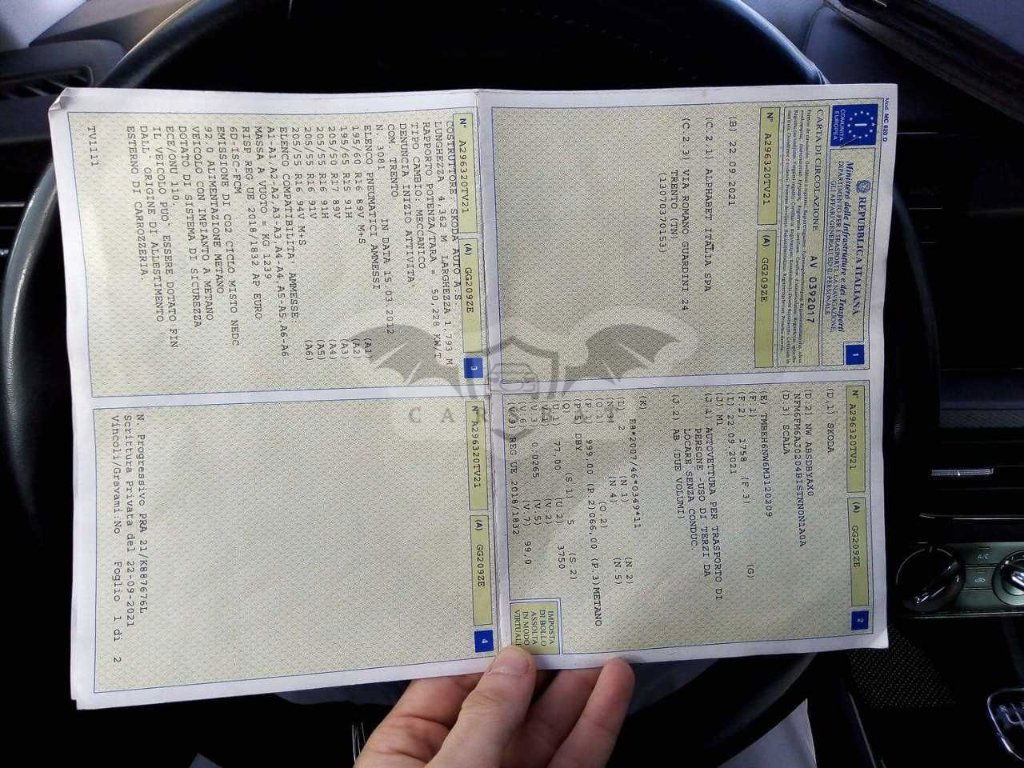 Mod. MC 820 D
COMUNITÀ
EUROPEA
REPUBBLICA ITALIANA
Ministero delle Infrastrutture e dei Trasporti
DIPARTIMENTO PER I TRASPORTI, LA NAVIGAZIONE,
GLI AFFARI GENERALI ED IL PERSONALE
1
CARTA DI CIRCOLAZIONE
AV 0392017
N° A296320TV21 (A) GG209ZE
(B) 22.09.2021
(C.2.1) ALPHABET ITALIA SPA
(C.2.3) VIA ROMANO GUARDINI 24
TRENTO (TN)
(13070370153)
N° A296320TV21 (A) GG209ZE
2
(D.1) SKODA
(D.2) NW ABSDBYAX0
(D.3) SCALA
(F.2) 1758 (F.3) (G)
(I) 22.09.2021
(J) M1
(J.1) AUTOVETTURA PER TRASPORTO DI
PERSONE -USO DI TERZI DA
LOCARE SENZA CONDUC.
(J.2) AB (DUE VOLUMI)
(K)
(P.1) 999.00 (P.2)066.00 (P.3)METANO
(P.5) DBY
(Q) (S.1) 5 (S.2)
(U.1) 77.00 (U.2) 3750
(V.3) 0.0265 (V.5)
(V.7) 99.0
(V.9) REG UE 2018/1832
IMPOSTA
DI BOLLO
ASSOLTA
IN MODO
VIRTUALE
N° A296320TV21 (A) GG209ZE
3
COSTRUTTORE: SKODA AUTO A.S.
LUNGHEZZA 4.362 M LARGHEZZA 1.793 M
RAPPORTO POTENZA/TARA = 50.228 KW/T
TIPO CAMBIO: MECCANICO
DENUNCIA INIZIO ATTIVITA'
COM. TRENTO
N. 3081 IN DATA 15.03.2012
ELENCO PNEUMATICI AMMESSI
195/60 R16 89V M+S (A1)
195/65 R15 91H (A2)
205/50 R17 89V (A3)
205/55 R16 91H (A4)
205/55 R16 91V (A5)
205/55 R16 94V M+S (A6)
ELENCO COMPATIBILITA' AMMESSE:
A1-A1,A2-A2,A3-A3,A4-A4,A5-A5,A6-A6
MASSA A VUOTO = KG 1239
RISP REG UE 2018/1832 AP EURO
6D-ISC-FCM
EMISSIONE DI CO2 CICLO MISTO NEDC
92.0 ALIMENTAZIONE METANO
VEICOLO CON IMPIANTO A METANO
DOTATO DI SISTEMA DI SICUREZZA
ECE/ONU 110.
IL VEICOLO PUO' ESSERE DOTATO FIN
DALL' ORIGINE DI ALLESTIMENTO
ESTERNO DI CARROZZERIA.
TV1111
N° A296320TV21 (A) GG209ZE
4
N. Progressivo PRA 21/K887676L
Scrittura Privata del 22-09-2021
Vincoli/Gravami:No Foglio 1 di 2